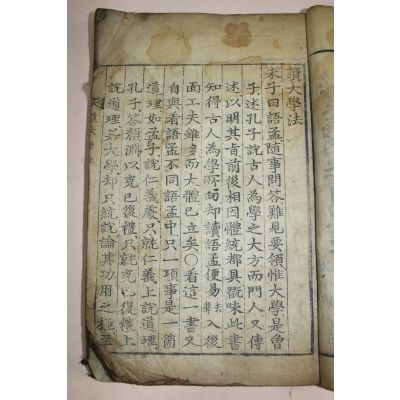 讀大學法
朱子曰語孟隨事問答難見要領惟大學是曾
子述孔子說古人爲學之大方而門人又傳
述以明其旨前後相因體統都具翫味此書
知得古人爲學所向却讀語孟便易去聲入後
面工夫雖多而大體已立矣〇看這一書又
自與看語孟不同語孟中只一項事是一箇
道理如孟子說仁義處只就仁義上說道理
孔子答顔淵以克己復禮只就克己復禮上
說道理若大學却只統說論其功用之極至